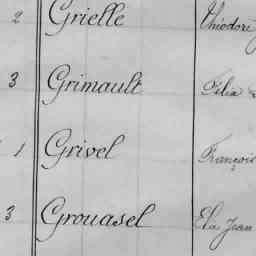 2 Grielle Théodore
3 Grimault Félix
1 Grivel François
3 Grouasel Jean